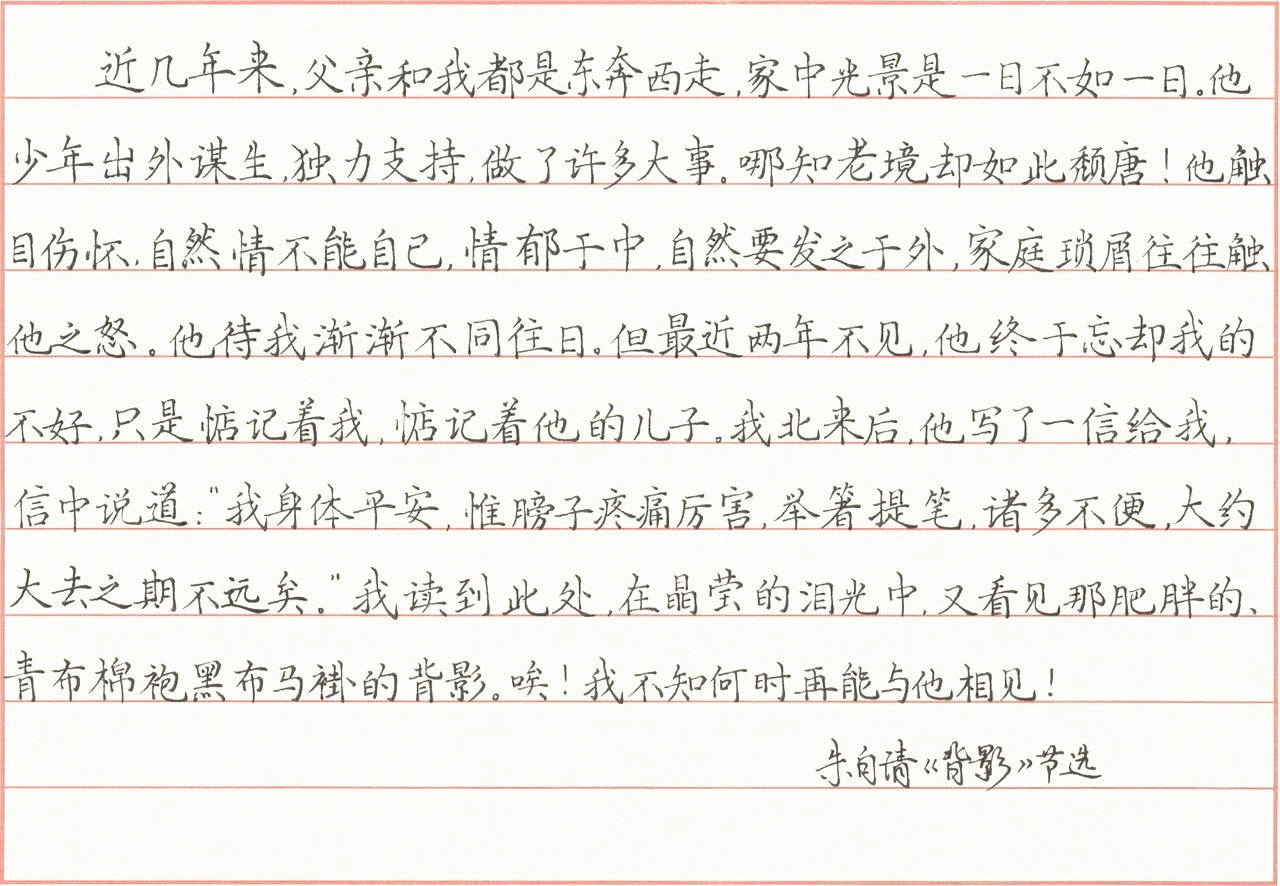 近几年来,父亲和我都是东奔西走,家中光景是一日不如一日。他
少年出外谋生,独力支持,做了许多大事。哪知老境却如此颓唐！他触
目伤怀,自然情不能自已,情郁于中,自然要发之于外,家庭琐屑往往触
他之怒。他待我渐渐不同往日。但最近两年不见,他终于忘却我的
不好,只是惦记着我,惦记着他的儿子。我北来后,他写了一信给我,
信中说道:"我身体平安,惟膀子疼痛厉害,举箸提笔,诸多不便,大约
大去之期不远矣。"我读到此处,在晶莹的泪光中,又看见那肥胖的、
青布棉袍黑布马褂的背影。唉！我不知何时再能与他相见！
朱自清《背影》节选